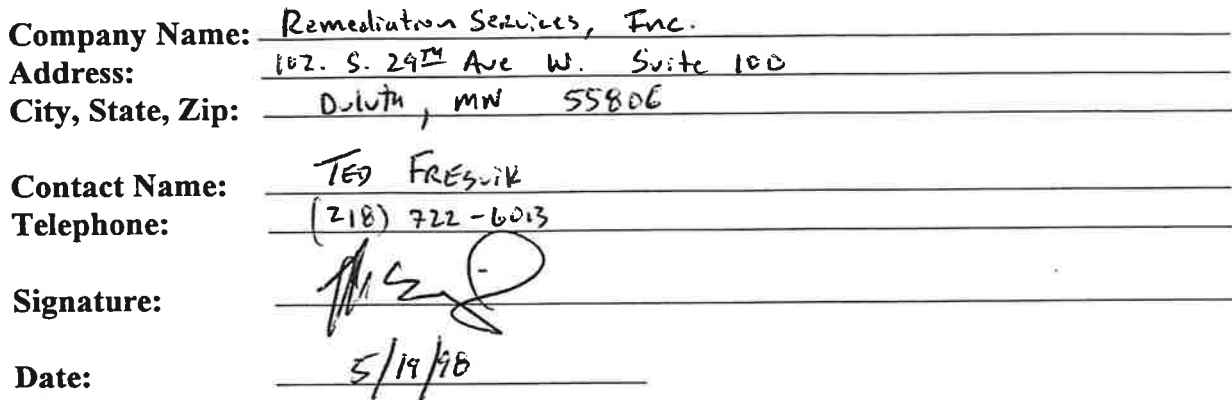 Company Name: Remediation Services, Inc.
Address: 102. S. 29TH Ave W. Suite 100
City, State, Zip: Duluth, MN 55806
Contact Name: TED FRESVIK
Telephone: (218) 722-6013
Signature:
Date: 5/19/98